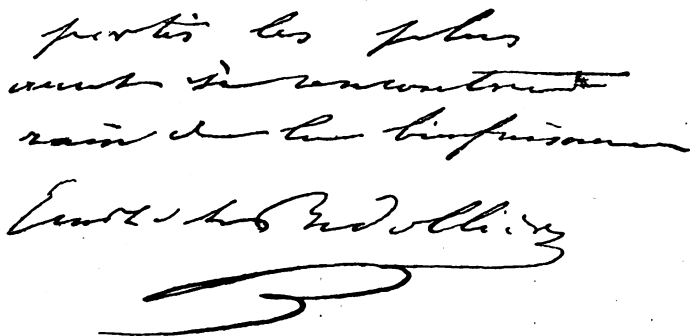 partis les plus
se rencontrent
de la bienfaisance
Emile de la Bédollière